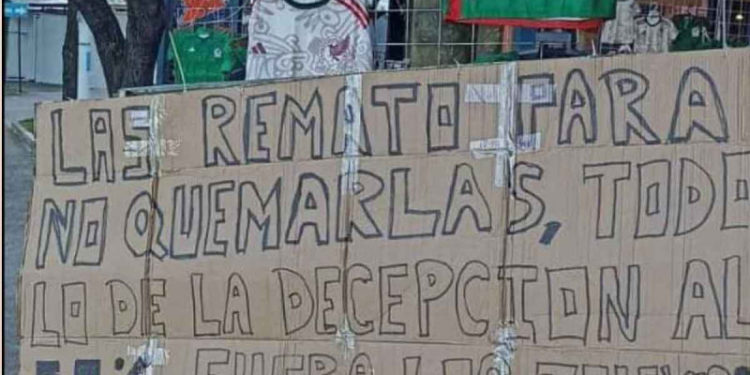 LAS REMATO PARA
NO QUEMARLAS, TODO
LO DE LA DECEPCION AL
FUERA LOS